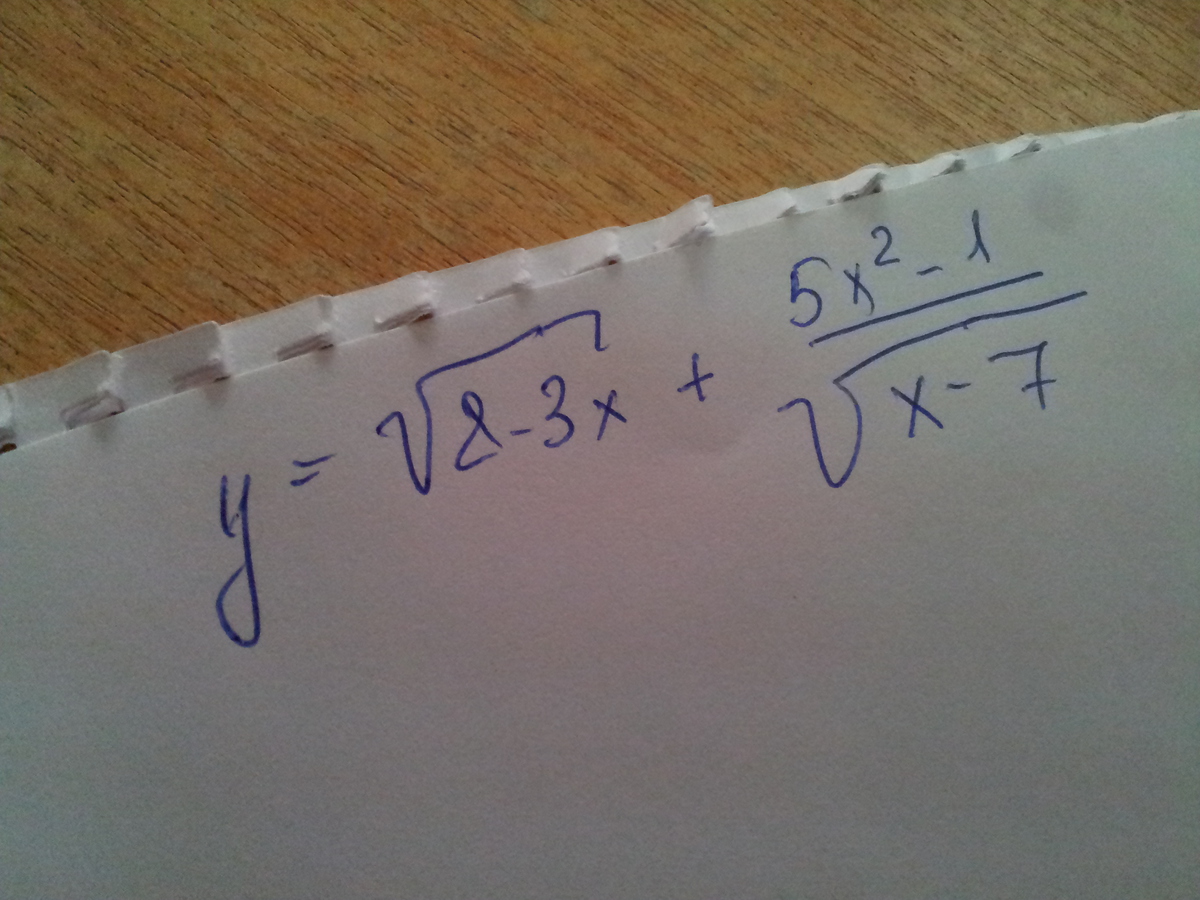 y = √(2-3x) + (5x² - 1)/√(x-7)